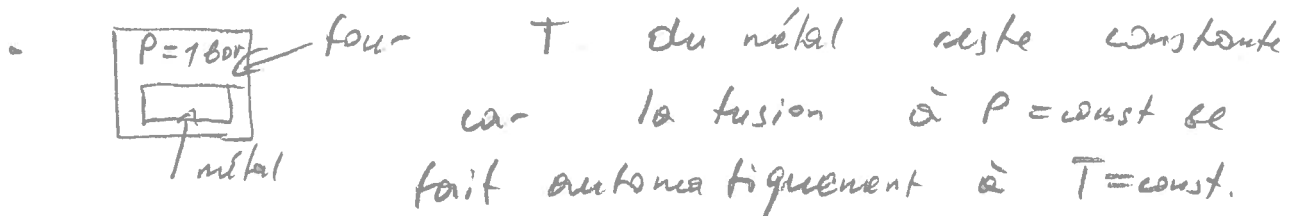 - P = 1 bar four T du métal reste constante
car la fusion à P = const se
métal fait automatiquement à T = const.